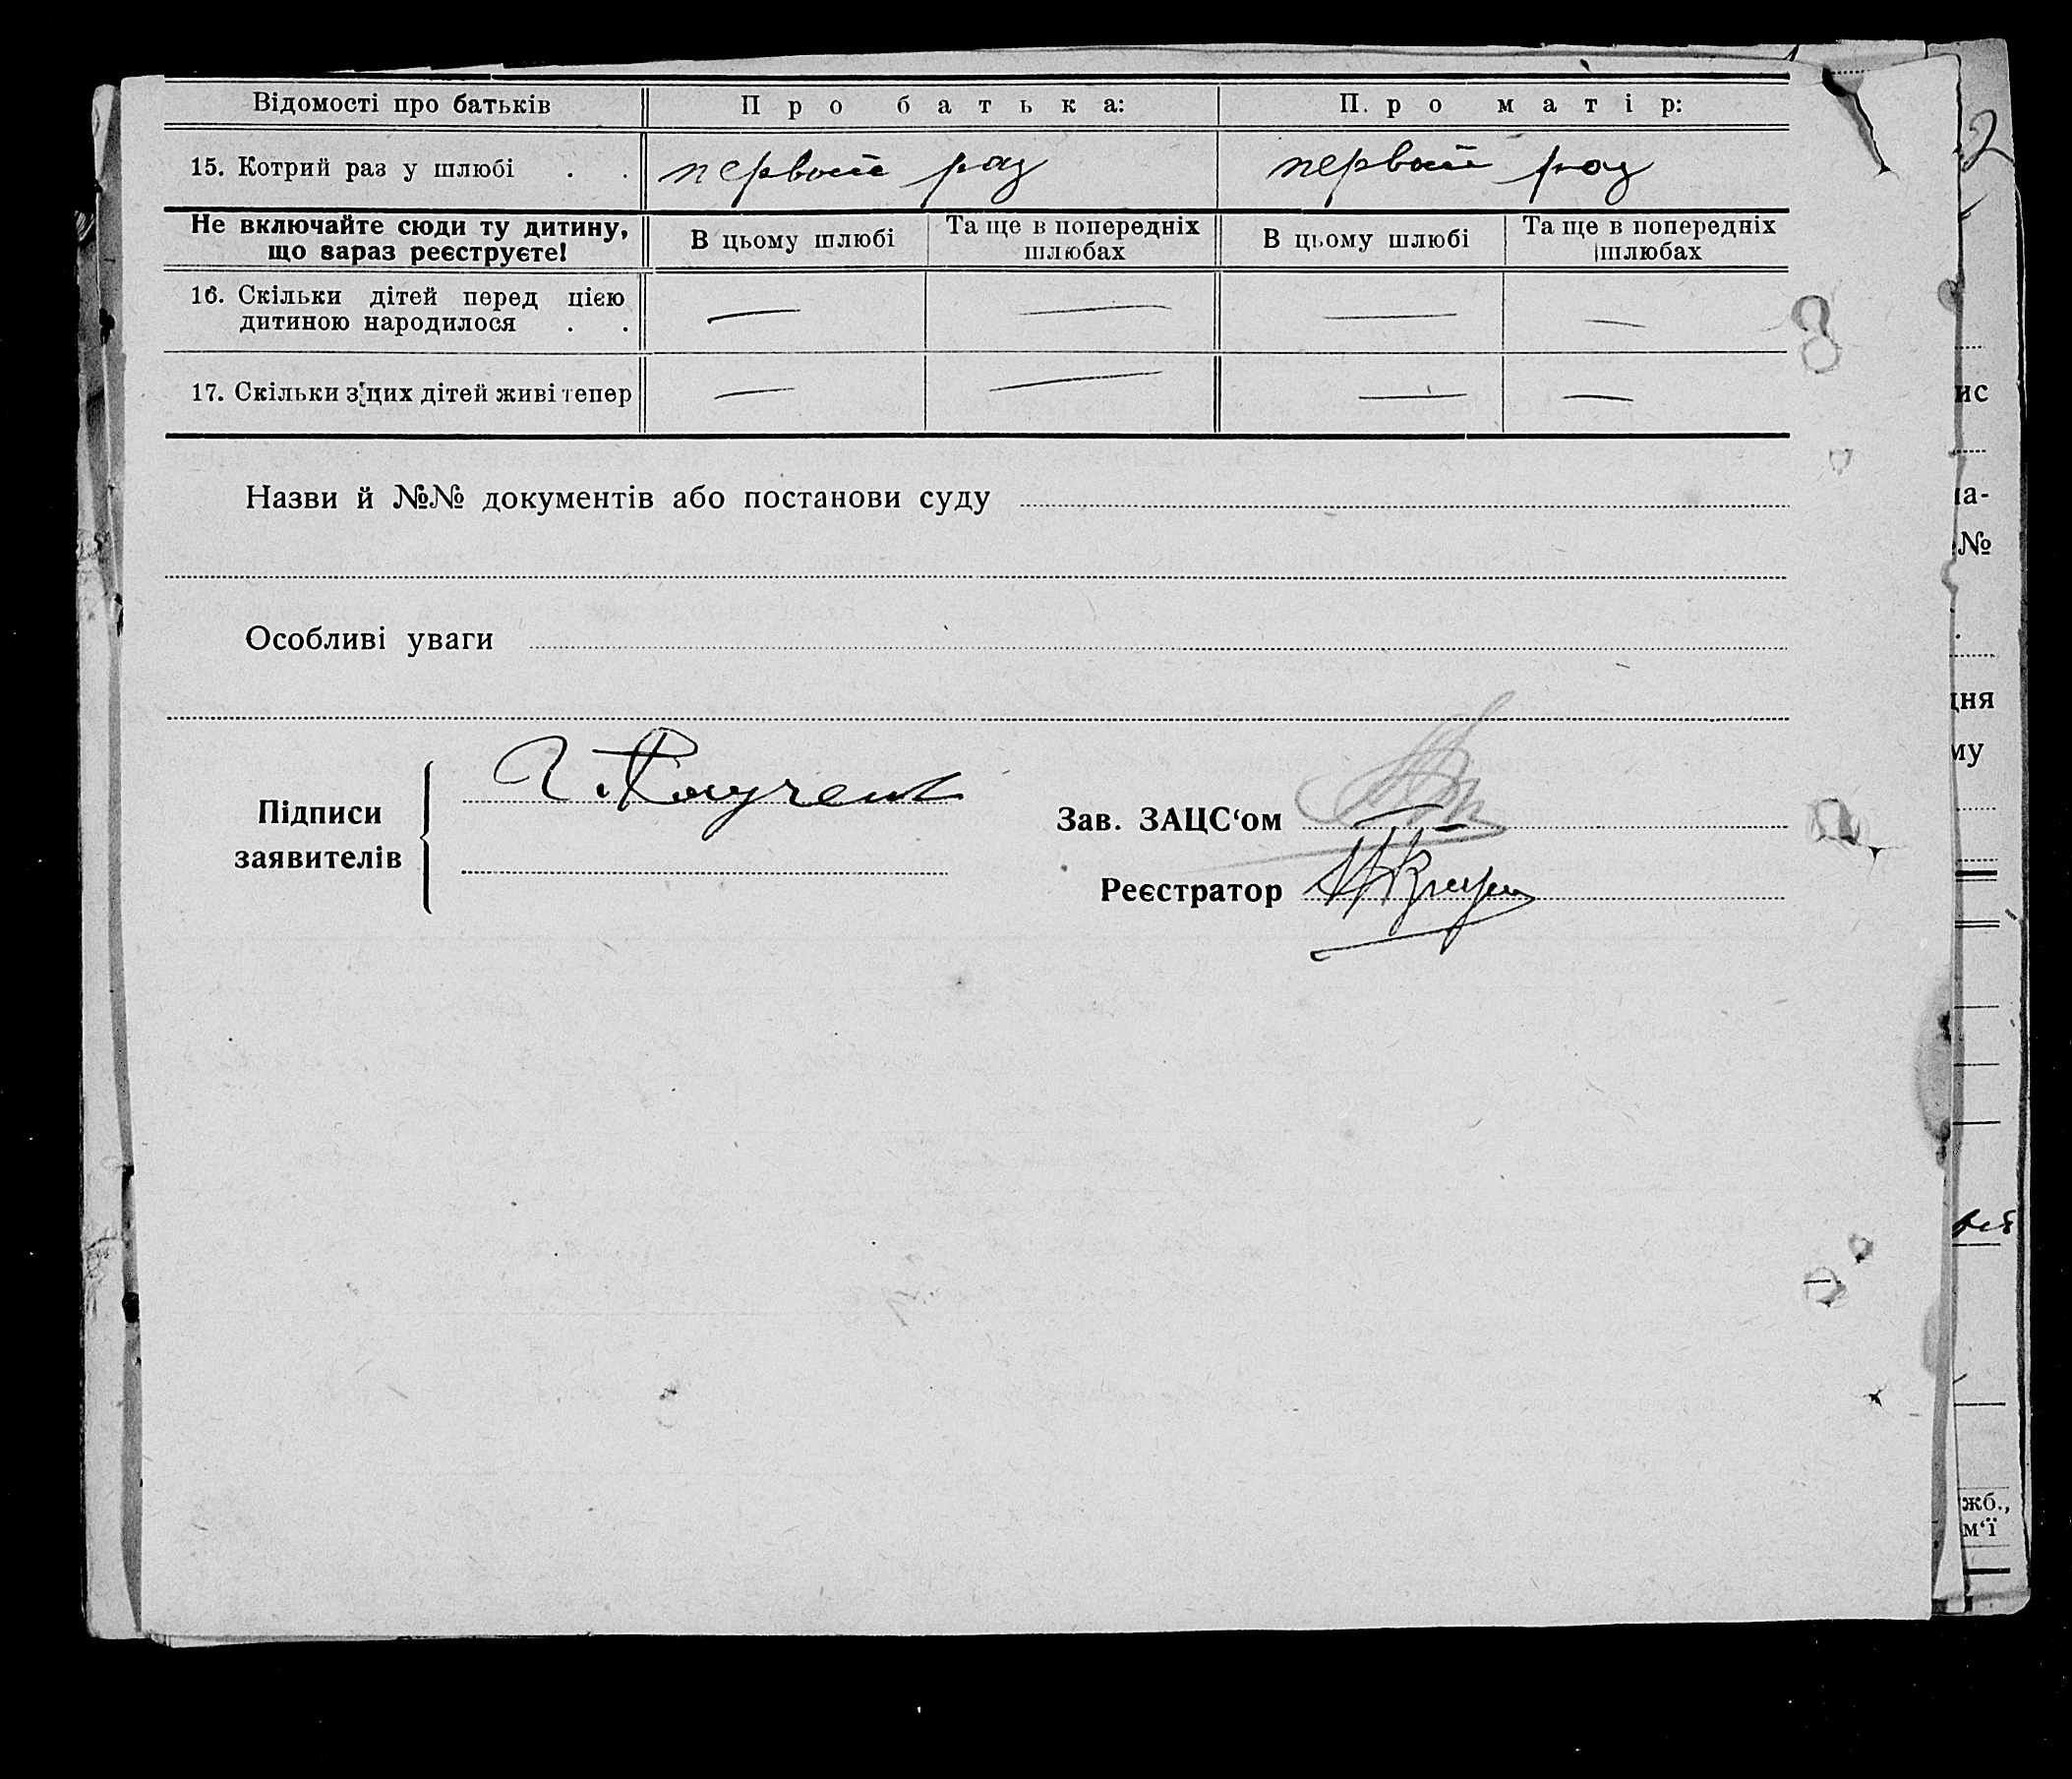 Відомості про батьків П р о б а т ь к а: П. р о м а т і р:
15. Котрий раз у шлюбі . . первый раз первый раз
Не включайте сюди ту дитину, що зараз реєструєте! В цьому шлюбі Та ще в попередніх шлюбах В цьому шлюбі Та ще в попередніх шлюбах
16. Скільки дітей перед цією
дитиною народилося . . — — — —
17. Скільки з цих дітей живі тепер — — — —
Назви й №№ документів або постанови суду
Особливі уваги
Підписи
заявителів
Зав. ЗАЦС‘ом
Реєстратор
2
ис
на-
№
дня
му
жб.,
м‘ї